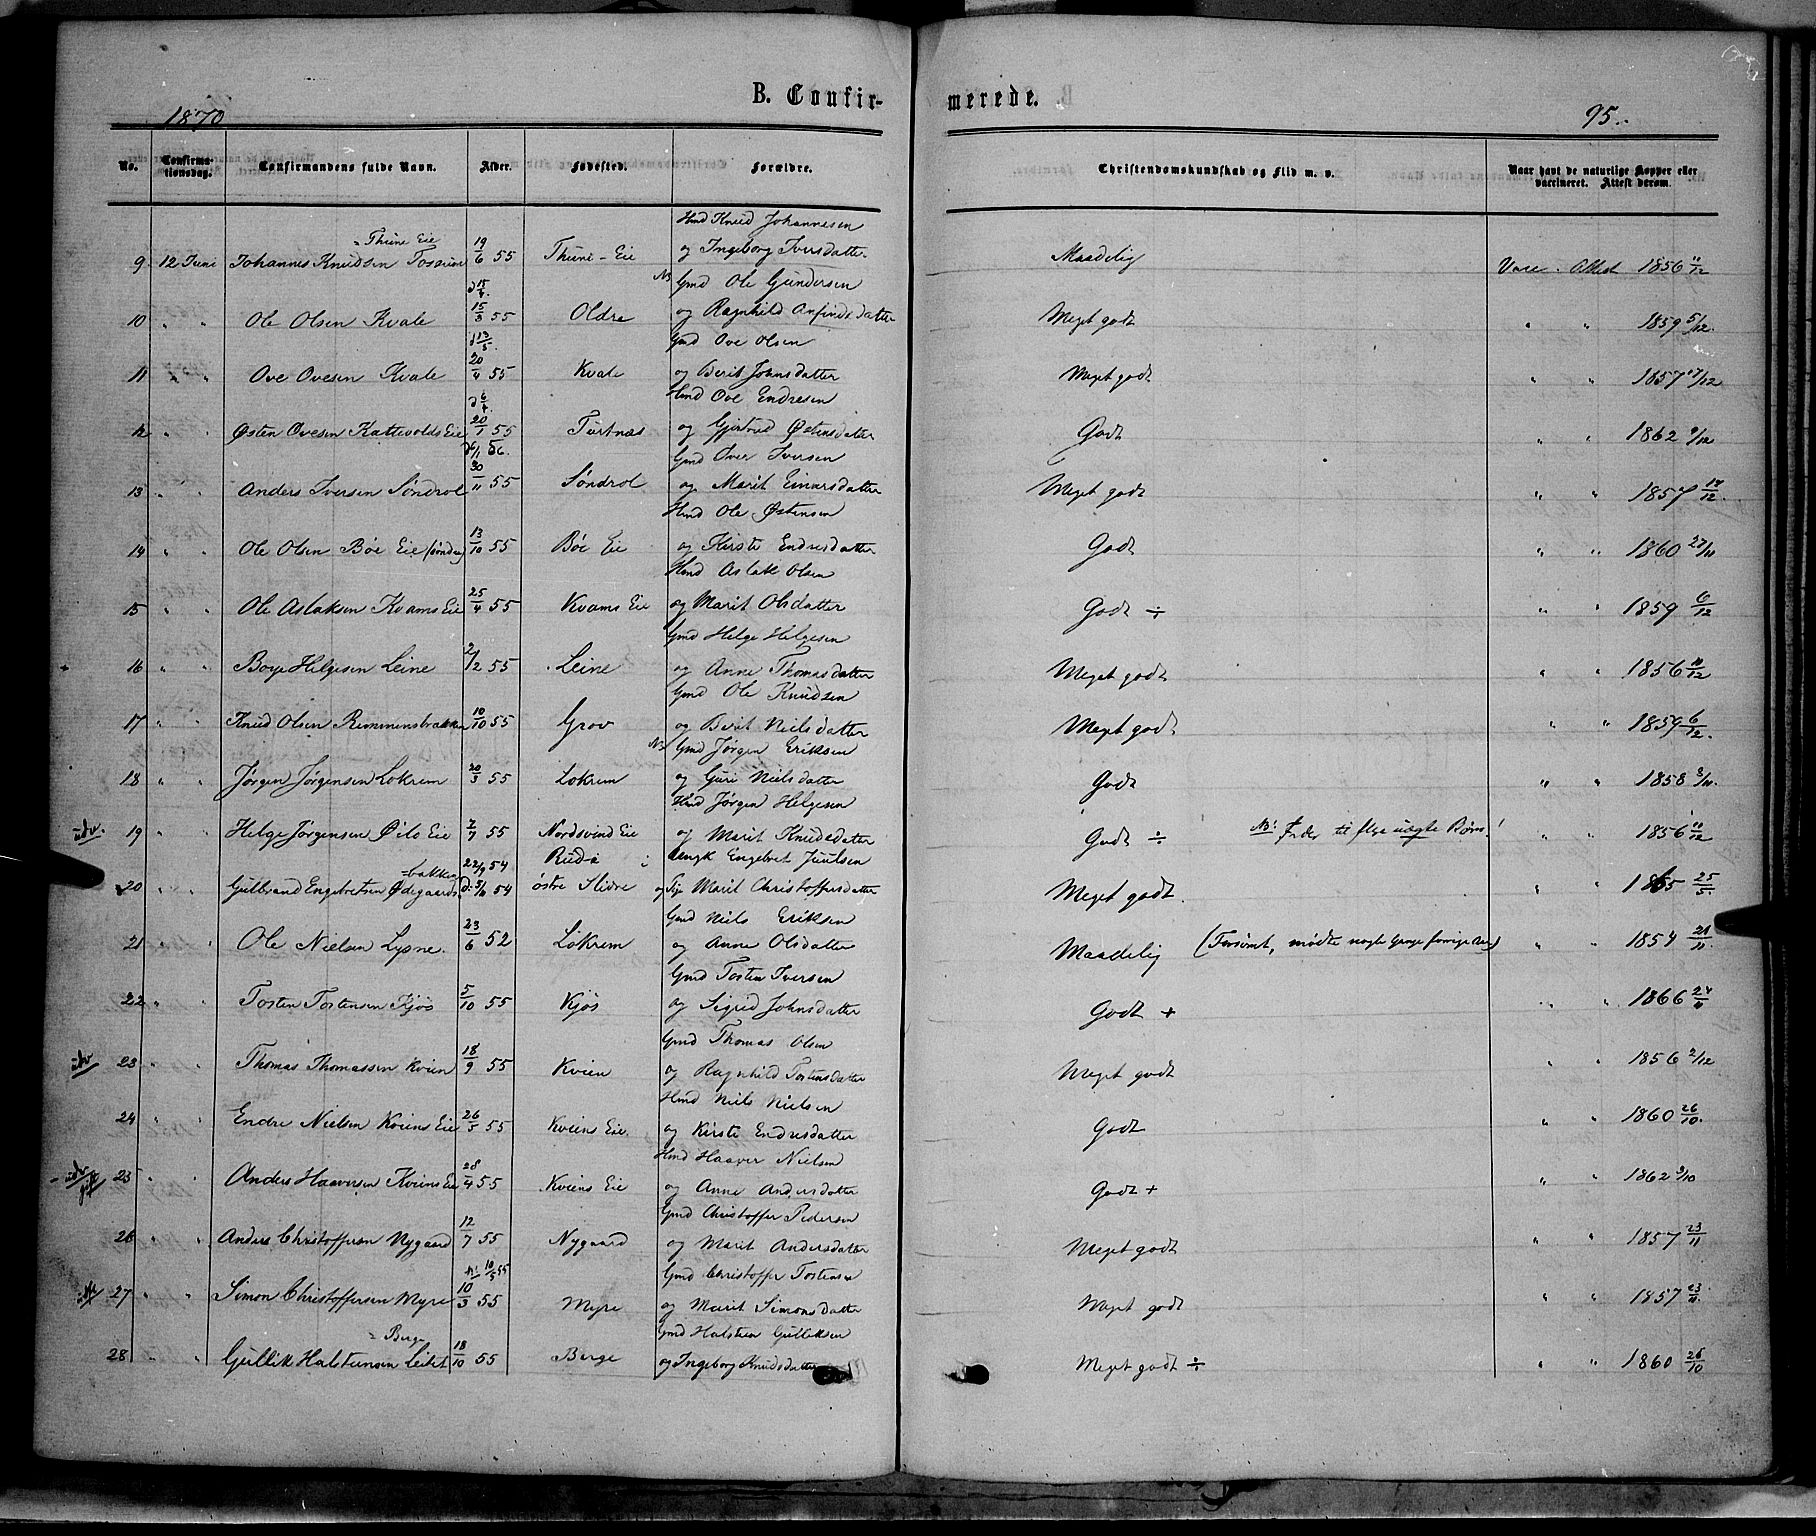 B. Confir-
merede.
1870
95.
No. Confirma-tionsdag. Confirmandens fulde Navn. Alder. Fødested. Forældre. Christendomskundskab og Flid m. v. Naar havt de naturlige Kopper eller vaccineret. Attest derom.
= Thune Eie Hmd Knud Johannesen
9. 12 Juni Johannes Knudsen 19/6 55 Thune-Eie og Ingeborg Iversdatter Maadelig Vacc. Attest 1856 11/12
NB Gmd Ole Gundersen
10 " " Ole Olsen Kvale 15/3 55 Oldre og Ragnhild Anfindsdatter Meget godt " " 1859 5/12.
Gmd Ove Olsen
11 " " Ove Ovesen Kvale 20/4 55 Kvale og Berit Johnsdatter Meget godt " " 1857 17/12
Hmd Ove Endresen
12 " " Østen Ovesen Kattevolds Eie 20/1 55 Turtnæs og Gjertrud Østensdatter Godt " " 1862 9/12
Gmd Iver Iversen
13 " " Anders Iversen Søndrol 30/11 55 Søndrol og Marit Einarsdatter Meget godt " " 1857 17/12
Hmd Ole Østensen
14 " " Ole Olsen Bøe Eie (søndre) 13/10 55 Bøe Eie og Kirste Endresdatter Godt " " 1860 27/11
Hmd Aslak Olsen
15 " " Ole Aslaksen Kvams Eie 25/4 55 Kvams Eie og Marit Olsdatter Godt ÷ " " 1859 6/12
Gmd Helge Helgesen
16 " " Boye Helgesen Leine 2/12 55 Leine og Anne Thomasdatter Meget godt " " 1856 11/12
Gmd Ole Knudsen
17 " " Knud Olsen Rimmensbrakken 10/10 55 Grov og Berit Nielsdatter Meget godt " " 1859 6/12.
NB Gmd Jørgen Eriksen
18 " " Jørgen Jørgensen Lokrem 20/3 55 Lokrem og Guri Nielsdatter Godt " " 1858 3/11.
Hmd Jørgen Helgesen
udv. 19 " " Helge Jørgensen Øilo Eie 2/7 55 Nordsvind Eie og Marit Knudsdatter Godt ÷ NB! Fader til flere uægte Børn! " " 1856 11/12
=bakken 22/9 54 Rudi i Ungk Engebret Juulsen
20 " " Gulbrand Engebretsen Ødegaards d. 5/11 54 østre Slidre og Pige Marit Christoffersdatter Meget godt. " " 1865 25/5.
Gmd Niels Eriksen
21 " " Ole Nielsen Lysne. 23/6 52 Lokrem og Anne Olsdatter Maadelig (Forsømt, mødte nogle Gange forrige Aar) " " 1854 21/11.
Gmd Tosten Iversen
22 " " Tosten Tostensen Kjøs 5/10 55 Kjøs og Sigrid Johnsdatter Godt + " " 1866 24/4
Gmd Thomas Olsen
udv 23 " " Thomas Thomassen Kvien 18/9 55 Kvien og Ragnhild Tostensdatter Meget godt " " 1856 2/12
Hmd Niels Nielsen
24 " " Endre Nielsen Kviens Eie 26/5 55 Kviens Eie. og Kirste Endresdatter Godt " " 1860 26/10.
Hmd Haaver Nielsen
- udv gift 25 " " Anders Haaversen Kviens Eie 28/4 55 Kviens Eie og Anne Andersdatter Godt + " " 1862 9/10
Gmd Christoffer Pedersen
26 " " Anders Christoffersen Nygaard 12/7 55 Nygaard og Marit Andersdatter Meget godt " " 1857 23/11
Gmd Christoffer Tostensen
27 " " Simon Christoffersen Myre 10/3 55 Myre og Marit Simonsdatter Meget godt " " 1857 23/11.
= Berge Gmd Halsten Gulliksen
28 " " Gullik Halstensen Leitet 18/10 55 Berge og Ingeborg Knudsdatter Meget godt ÷ " " 1860 26/10